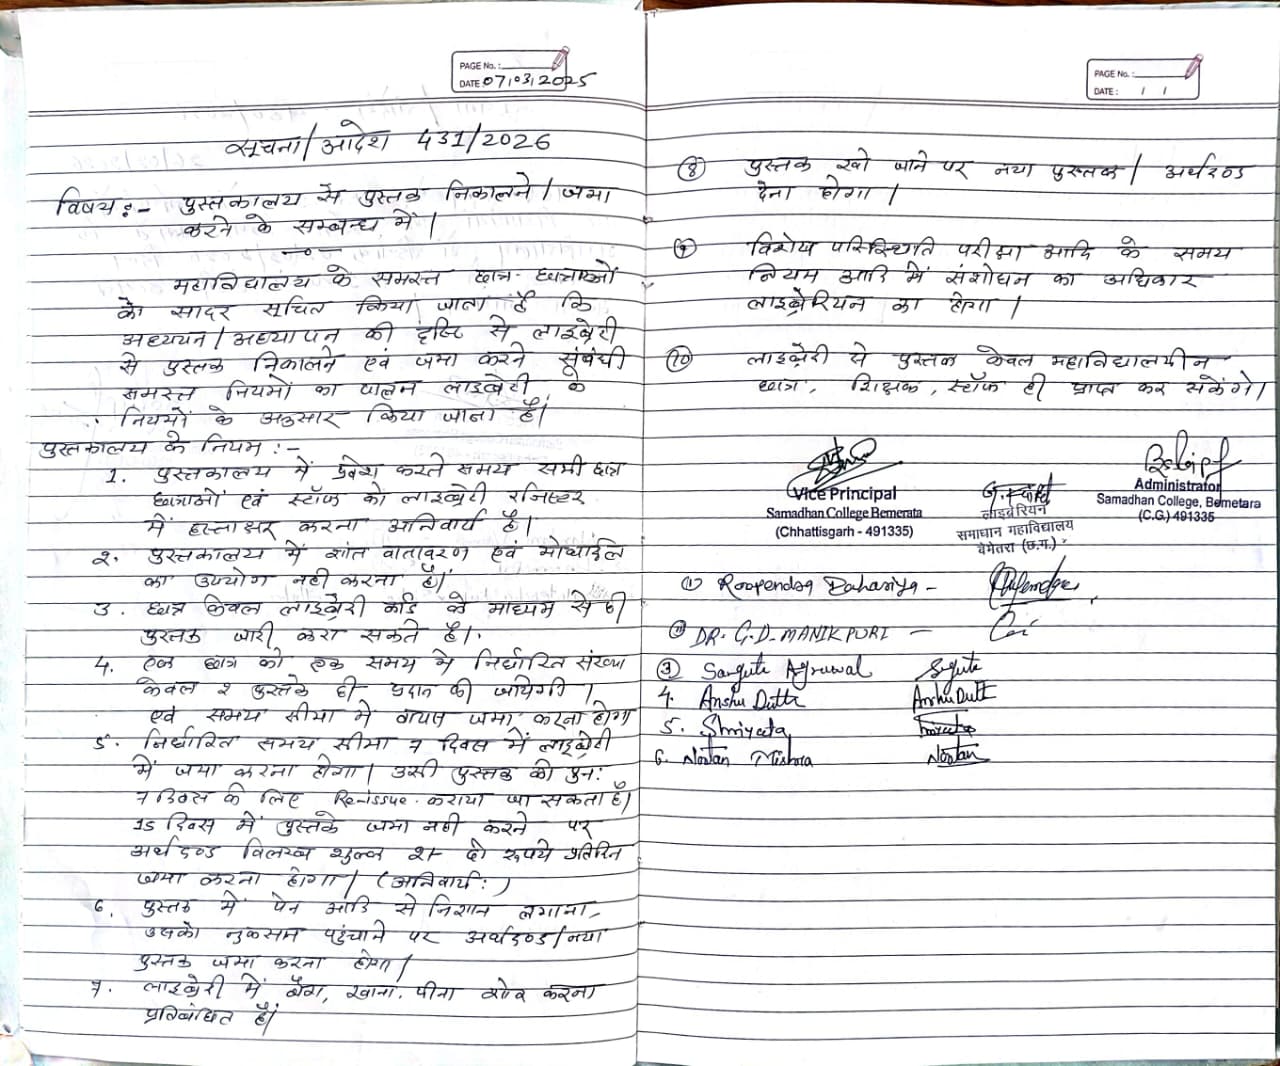 PAGE No. :
DATE 07/03/2025
सूचना/आदेश 431/2026
विषय :- पुस्तकालय से पुस्तक निकालने/जमा
करने के सम्बन्ध में।
महाविद्यालय के समस्त छात्र-छात्राओं
को सादर सूचित किया जाता है कि
अध्ययन/अध्यापन की दृष्टि से लाइब्रेरी
से पुस्तक निकालने एवं जमा करने संबंधी
समस्त नियमों का पालन लाइब्रेरी के
नियमों के अनुसार किया जाना है।
पुस्तकालय के नियम :-
1. पुस्तकालय में प्रवेश करते समय सभी छात्र
छात्राओं एवं स्टॉफ को लाइब्रेरी रजिस्टर
में हस्ताक्षर करना अनिवार्य है।
2. पुस्तकालय में शांत वातावरण एवं मोबाईल
का उपयोग नही करना है।
3. छात्र केवल लाइब्रेरी कॉर्ड के माध्यम से ही
पुस्तक जारी करा सकते है।
4. एक छात्र को एक समय में निर्धारित संख्या
केवल 2 पुस्तके ही प्रदान की जायेगी।
एवं समय सीमा में वापस जमा करना होगा
5. निर्धारित समय सीमा 7 दिवस में लाइब्रेरी
में जमा करना होगा। उसी पुस्तक को पुन:
7 दिवस के लिए Re-issue कराया जा सकता है।
15 दिवस में पुस्तके जमा नही करने पर
अर्थदण्ड विलम्ब शुल्क 2/- दो रूपये प्रतिदिन
जमा करना होगा। (अनिवार्य:)
6. पुस्तक में पेन आदि से निशान लगाना,
उसको नुकसान पहुंचाने पर अर्थदण्ड/नया
पुस्तक जमा करना होगा।
7. लाइब्रेरी में बैग, खाना, पीना शोर करना
प्रतिबंधित है।
PAGE No. :
DATE : / /
8 पुस्तक खो जाने पर नया पुस्तक/ अर्थदण्ड
देना होगा।
9 विशेष परिस्थिति परीक्षा आदि के समय
नियम आदि में संशोधन का अधिकार
लाइब्रेरियन का होगा।
10 लाइब्रेरी से पुस्तक केवल महाविद्यालयीन
छात्र, शिक्षक, स्टॉफ ही प्राप्त कर सकेंगे।
Vice Principal
Samadhan College Bemerata
(Chhattisgarh - 491335)
लाइब्रेरियन
समाधान महाविद्यालय
बेमेतरा (छ.ग.)
Administrator
Samadhan College, Bemetara
(C.G.) 491335
(1) Roopendra Dahariya -
(2) DR. G.D. MANIKPURI -
(3) Sangeeta Agrawal
4. Anshu Dutt Anshu Dutt
5. Shriyata
6. Nootan Mishra Nootan